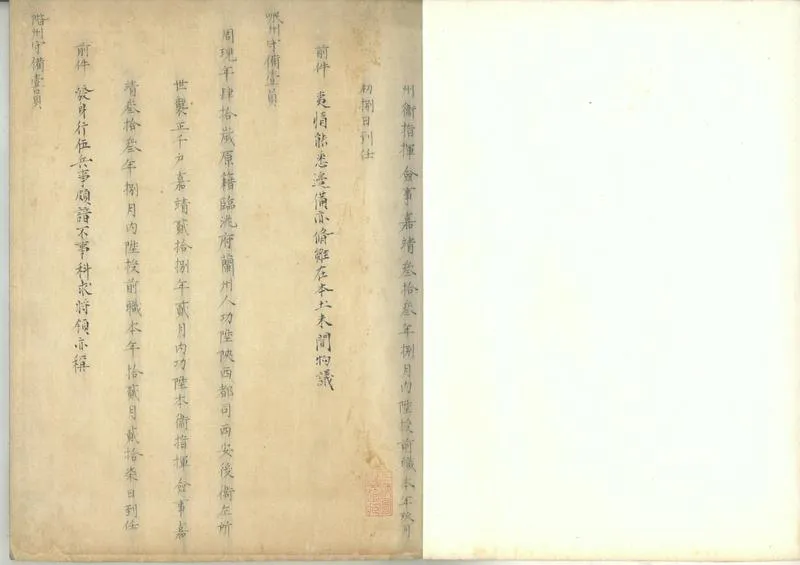 州衛指揮僉事嘉靖叄拾叄年捌月內陞授前職本年玖月
初捌日到任
前件夷情能悉邊備亦脩雖在本土未聞物議
岷州守備壹員
周現年肆拾歲原籍臨洮府蘭州人功陞陝西都司西安後衛左所
世襲正千戶嘉靖貳拾捌年貳月內功陞本衛指揮僉事嘉
靖叄拾叄年捌月內陞授前職本年拾貳月貳拾柒日到任
前件發身行伍兵事頗諳不事科求將領亦稱
階州守備壹員